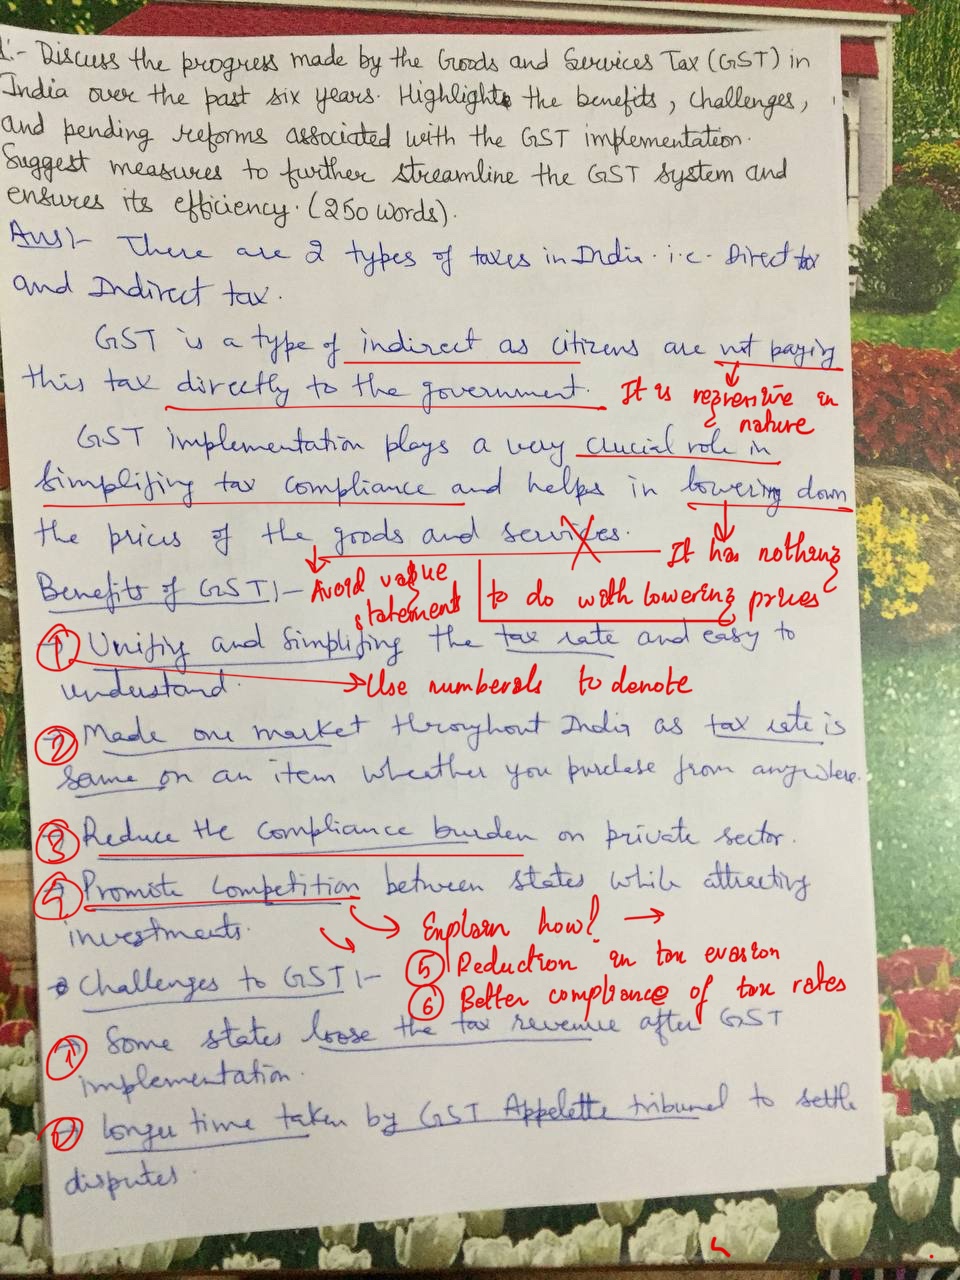 1:- Discuss the progress made by the Goods and Services Tax (GST) in
India over the past six years. Highlight the benefits, challenges,
and pending reforms associated with the GST implementation.
Suggest measures to further streamline the GST system and
ensures its efficiency. (250 words).
Ans:- There are 2 types of taxes in India. i.e. Direct tax
and Indirect tax.
GST is a type of indirect as citizens are not paying
this tax directly to the government.
It is regressive in
nature
GST implementation plays a very crucial role in
Simplifing tax compliance and helps in lowering down
the prices of the goods and services.
It has nothing
to do with lowering prices
Benefits of GST:-
Avoid vague
statement
1 Unifiy and Simplifing the tax rate and easy to
understand.
Use numberals to denote
2 Made one market throughout India as tax rate is
same on an item wheather you purchase from anywhere.
3 Reduce the compliance burden on private sector.
4 Promote competition between states while attracting
investments.
Explain how?
5 Reduction in tax evasion
6 Better compliance of tax rates
Challenges to GST:-
1 Some states loose the tax revenue after GST
implementation.
2 longer time taken by GST Appelette tribunal to settle
disputes.